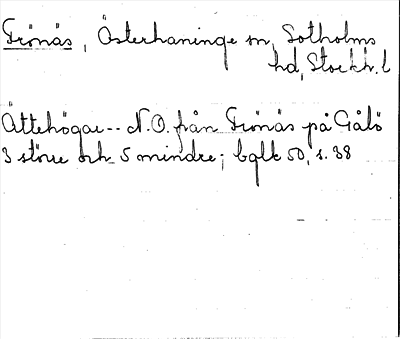 Frönäs, Österhaninge sn, Sotholms
hd, Stockh. l
Ättehögar -- N.O. från Frönäs på Gålö
3 större och 5 mindre; bglt 50, s. 38